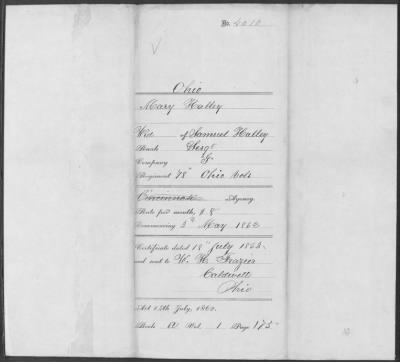 No. 4010
Ohio
Mary Halley
Wid of Samuel Halley
Rank Sergt
Company G
Regiment 78" Ohio Vols
Cincinnati Agency
Rate per month, $ 8
Commencing 3d May 1863
Certificate dated 18" July 1863
and sent to W. H. Frazier
Caldwell
Ohio
Act 14th July, 1862.
Book A Vol. 1 Page 175